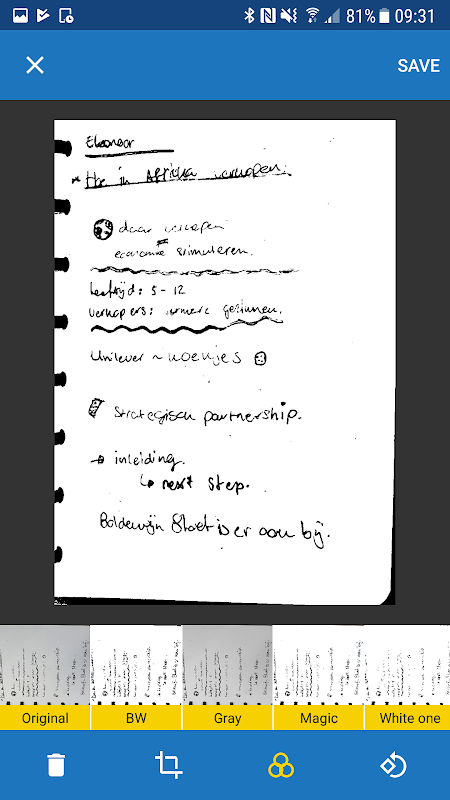 81% 09:31
SAVE
Eleonoor
in Afrika verkopen.
daar verkopen
economie stimuleren.
leeftijd: 5 - 12
verkopers: gezinnen.
Unilever ~ koekjes
Strategisch partnership.
→ inleiding.
↳ next step.
Boldewijn er aan bij.
Original
BW
Gray
Magic
White one